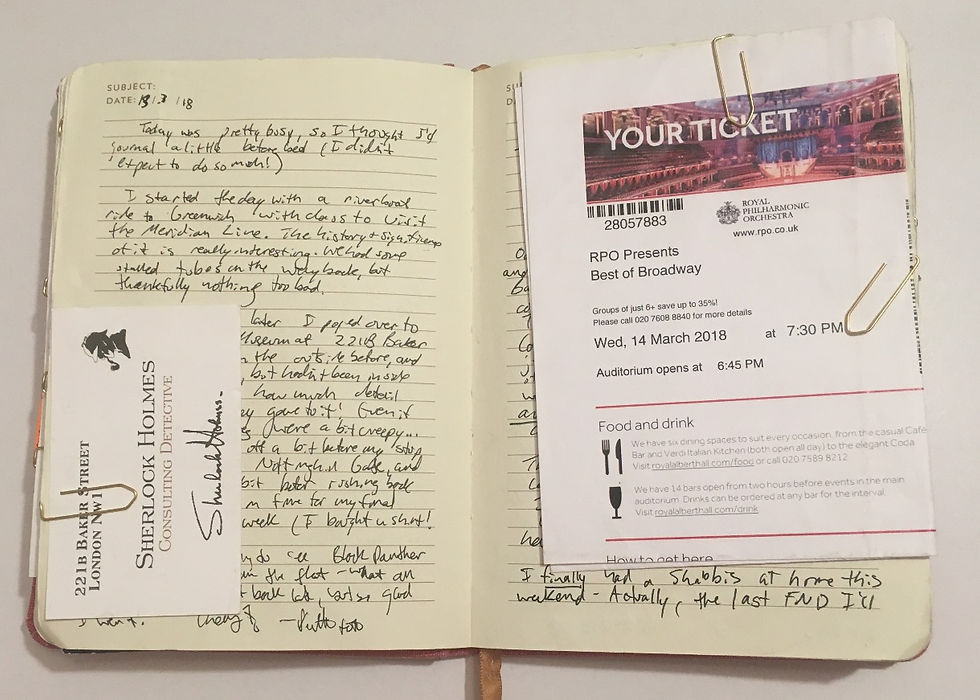 SUBJECT:
DATE: 13/3/18
Today was pretty busy, so I thought I'd
journal a little before bed (I didn't
expect to do so much!)
I started the day with a riverboat
ride to Greenwich with class to visit
the Meridian Line. The history + significance
of it is really interesting. We had some
stalled tubes on the way back, but
thankfully nothing too bad.
later I poped over to
Museum at 221B Baker
the outside before, and
, but hadn't been inside
how much detail
gave to it! Even if
were a bit creepy...
off a bit before my stop
Notting Hill Gate, and
bit later rushing back
in time for my final
week (I bought a shirt!
to see Black Panther
in the flat - what an
good
221B BAKER STREET
LONDON NW1
SHERLOCK HOLMES
CONSULTING DETECTIVE
Sherlock Holmes
YOUR TICKET
28057883
ROYAL
PHILHARMONIC
ORCHESTRA
www.rpo.co.uk
RPO Presents
Best of Broadway
Groups of just 6+ save up to 35%!
Please call 020 7608 8840 for more details
Wed, 14 March 2018 at 7:30 PM
Auditorium opens at 6:45 PM
Food and drink
We have six dining spaces to suit every occasion, from the casual Café
Bar and Verdi Italian Kitchen (both open all day) to the elegant Coda
Visit royalalberthall.com/food or call 020 7589 8212
We have 14 bars open from two hours before events in the main
auditorium. Drinks can be ordered at any bar for the interval.
Visit royalalberthall.com/drink
How to get here
I finally had a Shabbis at home this
weekend - Actually, the last FND I'll